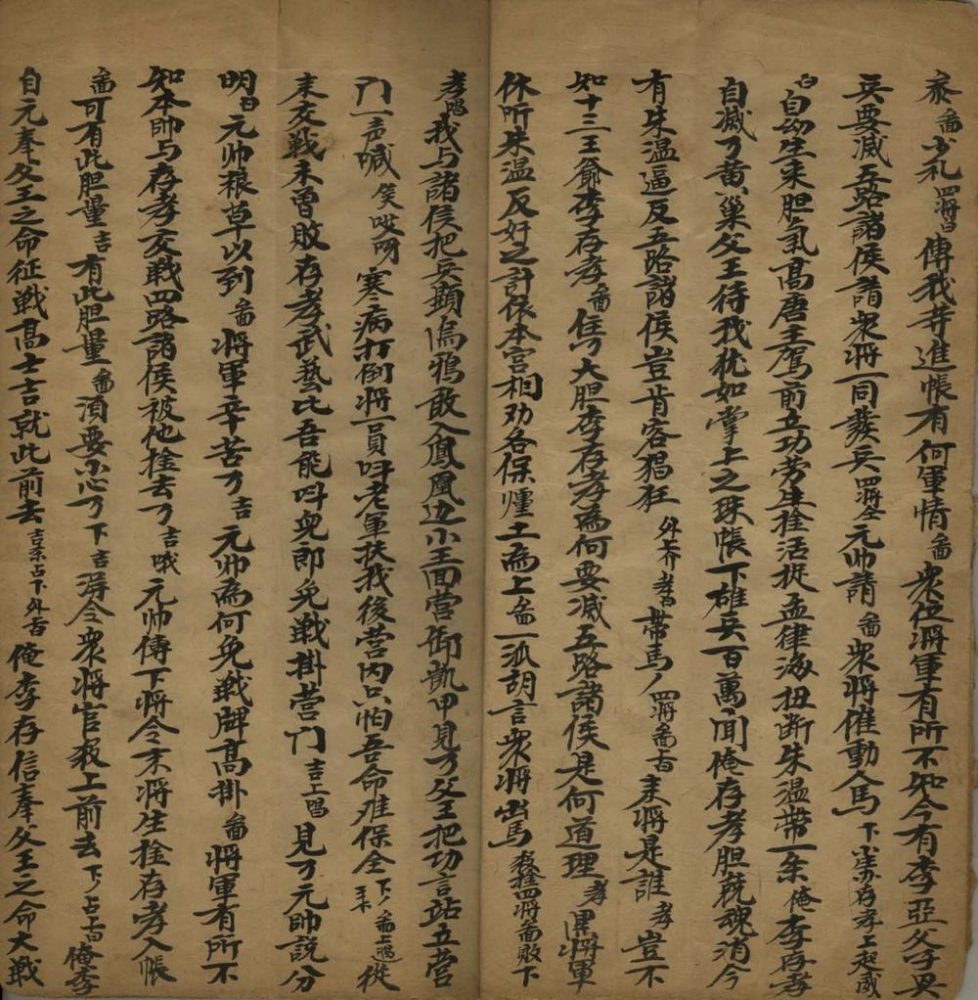 参 畨少礼 四將白 傳我荨進帳有何軍情 畨 衆位將軍有所不知今有李亞父子興
兵要滅五路諸侯請衆將一同發兵 四將全 元帅請 畨 衆將催動人馬 下 存孝上起威
白 自幼生来胆氣高唐主驾前立功劳生拴活捉孟律海扭断朱温带一条 俺李存孝
自滅了黄巢父王待我犹如掌上之珠帳下雄兵百萬闻俺存孝胆兢魂消今
有朱温逼反五路諸侯豈肯容猖狂 外荠孝白 带馬 四將畨上白 来將是誰 孝 豈不
知十三王爺李存孝 畨 住了大胆李存孝為何要滅五路諸侯是何道理 孝 众將軍
休听朱温反奸之計依本宫相劝各保疆土為上 畨 一派胡言衆將出馬 殺拴四將畨败下
孝唱 我与諸侯把兵顕隖鴉敢入鳳凰边小王面營卸凱甲見了父王把功言站立营
门一声喊 侯哎呵 寒病打倒將一員呌老軍扶我後营内只怕吾命难保全 下 畨上唱 從
来交戰未曾敗存孝武藝比吾能呌免郎免戰掛营门 吉上唱 見了元帥說分
明 白 元帅粮草以到 畨 將軍辛苦了 吉 元帅為何免戰牌高掛 畨 將軍有所不
知本帥与存孝交戰四路諸侯被他拴去了 吉 哦 元帅傳下將令末將生拴存孝入帳
畨 可有此胆量 吉 有此胆量 畨 須要小心了 下 吉 得令衆將官殺上前去 下 占上白 俺李
自元奉父王之命征戰高士吉就此前去 吉杀占下外占 俺李存信奉父王之命大戰